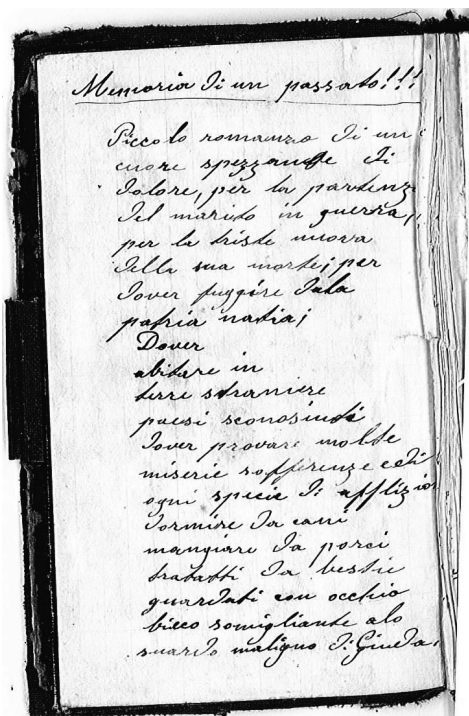 Memoria di un passato!!!
Piccolo romanzo di un
cuore spezzante di
dolore, per la partenz
del marito in guerra,
per la triste nuova
della sua morte; per
dover fuggire dala
patria natia;
Dover
abitare in
terre straniere
paesi sconosiuti
dover provare molte
miserie sofferenze e di
ogni specie di afflizion
dormire da cani
mangiare da porci
tratatti da bestie
guardati con occhio
bieco somigliante alo
suardo maligno di Giuda.